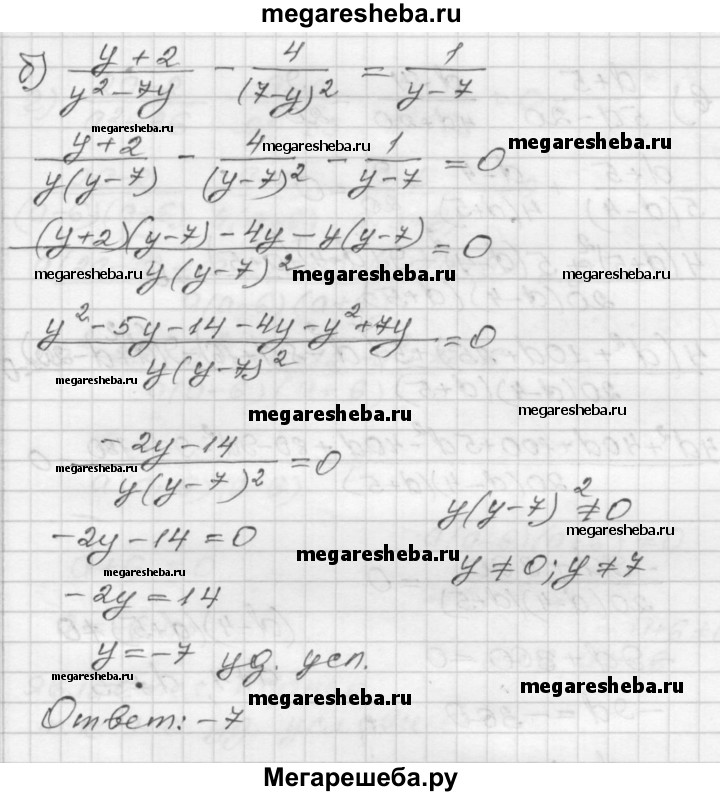 megaresheba.ru
б) (y + 2)/(y² - 7y) - 4/(7-y)² = 1/(y - 7)
megaresheba.ru
megaresheba.ru
megaresheba.ru
(y+2)/(y(y-7)) - 4/(y-7)² - 1/(y-7) = 0
((y+2)(y-7) - 4y - y(y-7))/(y(y-7)²) = 0
megaresheba.ru
megaresheba.ru
megaresheba.ru
(y² - 5y - 14 - 4y - y² + 7y)/(y(y-7)²) = 0
megaresheba.ru
megaresheba.ru
megaresheba.ru
(-2y - 14)/(y(y-7)²) = 0
megaresheba.ru
y(y-7)² ≠ 0
megaresheba.ru
-2y - 14 = 0
megaresheba.ru
y ≠ 0; y ≠ 7
megaresheba.ru
-2y = 14
y = -7 уд. усл.
megaresheba.ru
megaresheba.ru
megaresheba.ru
Ответ: -7
Мегарешеба.ру